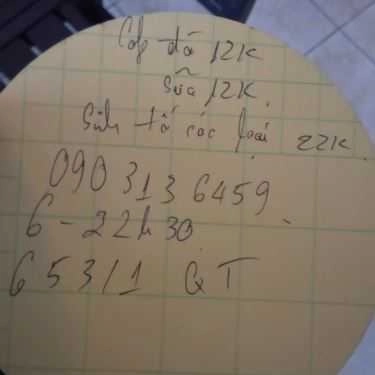 Cafe đá 12K
Sữa 12K.
Sinh tố các loại 22K.
090 313 6459
6 - 22h30
653/1 QT